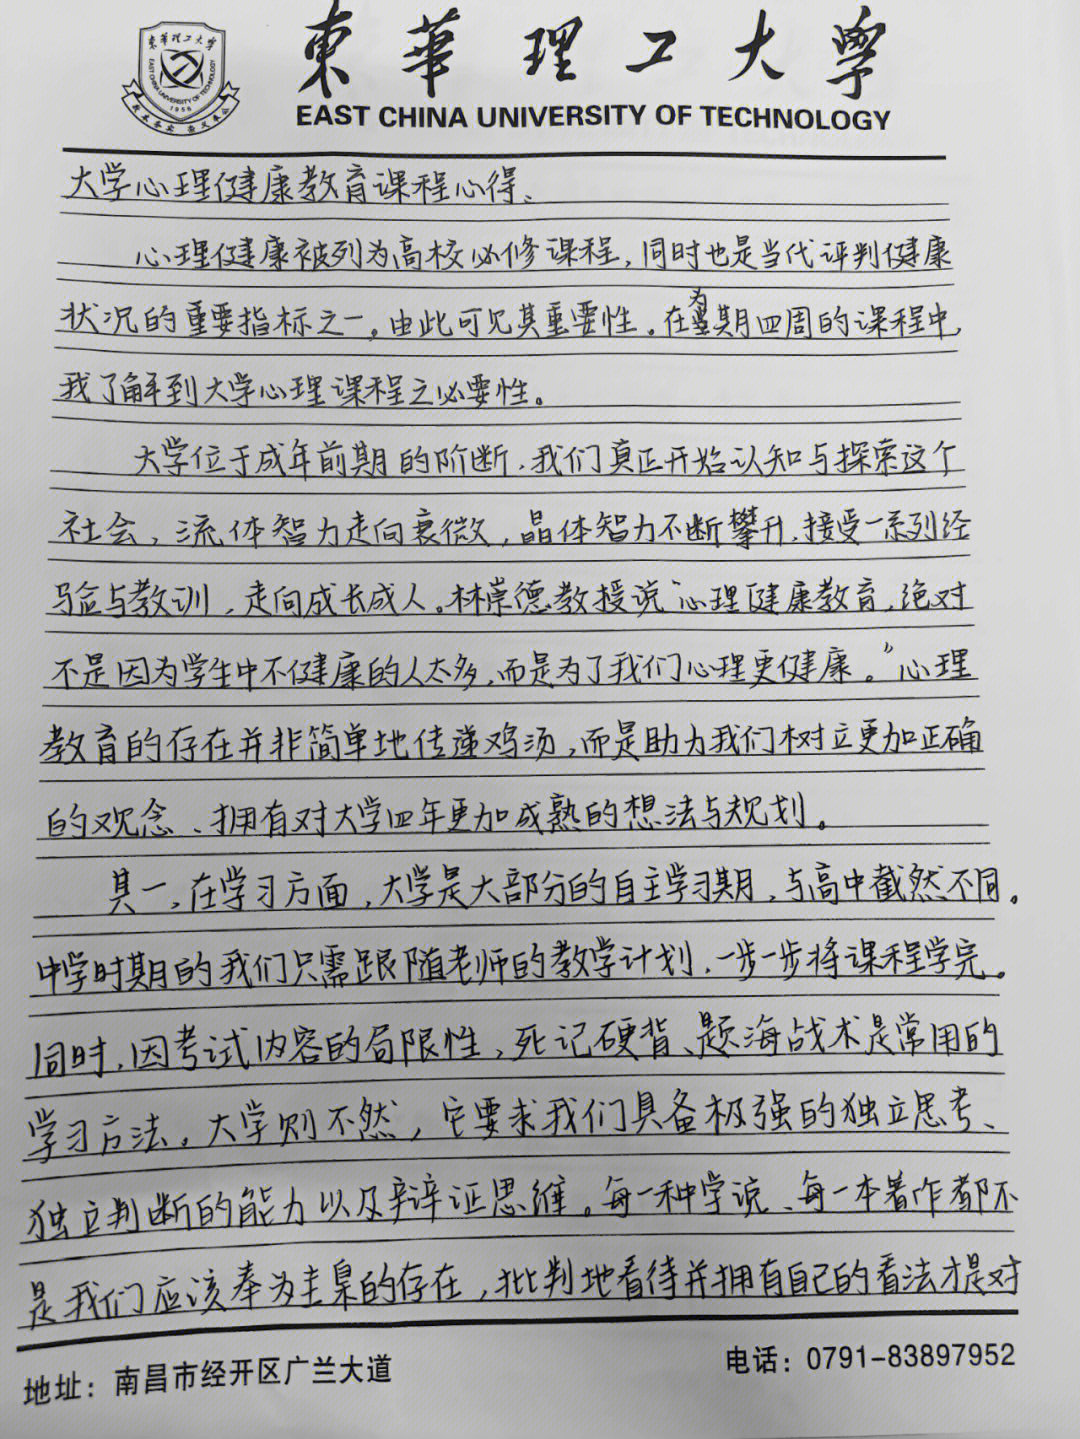 東華理工大學
EAST CHINA UNIVERSITY OF TECHNOLOGY
東華理工大學
EAST CHINA UNIVERSITY OF TECHNOLOGY
1956
大学心理健康教育课程心得、
心理健康被列为高校必修课程，同时也是当代评判健康
状况的重要指标之一。由此可见其重要性。在为期四周的课程中，
我了解到大学心理课程之必要性。
大学位于成年前期的阶断，我们真正开始认知与探索这个
社会，流体智力走向衰微，晶体智力不断攀升，接受一系列经
验与教训，走向成长成人。林崇德教授说“心理健康教育，绝对
不是因为学生中不健康的人太多，而是为了我们心理更健康。”心理
教育的存在并非简单地传递鸡汤，而是助力我们树立更加正确
的观念、拥有对大学四年更加成熟的想法与规划。
其一，在学习方面，大学是大部分的自主学习期，与高中截然不同。
中学时期的我们只需跟随老师的教学计划，一步一步将课程学完。
同时，因考试内容的局限性，死记硬背、题海战术是常用的
学习方法。大学则不然，它要求我们具备极强的独立思考、
独立判断的能力以及辩证思维。每一种学说、每一本著作都不
是我们应该奉为圭臬的存在，批判地看待并拥有自己的看法才是对
地址：南昌市经开区广兰大道
电话：0791-83897952